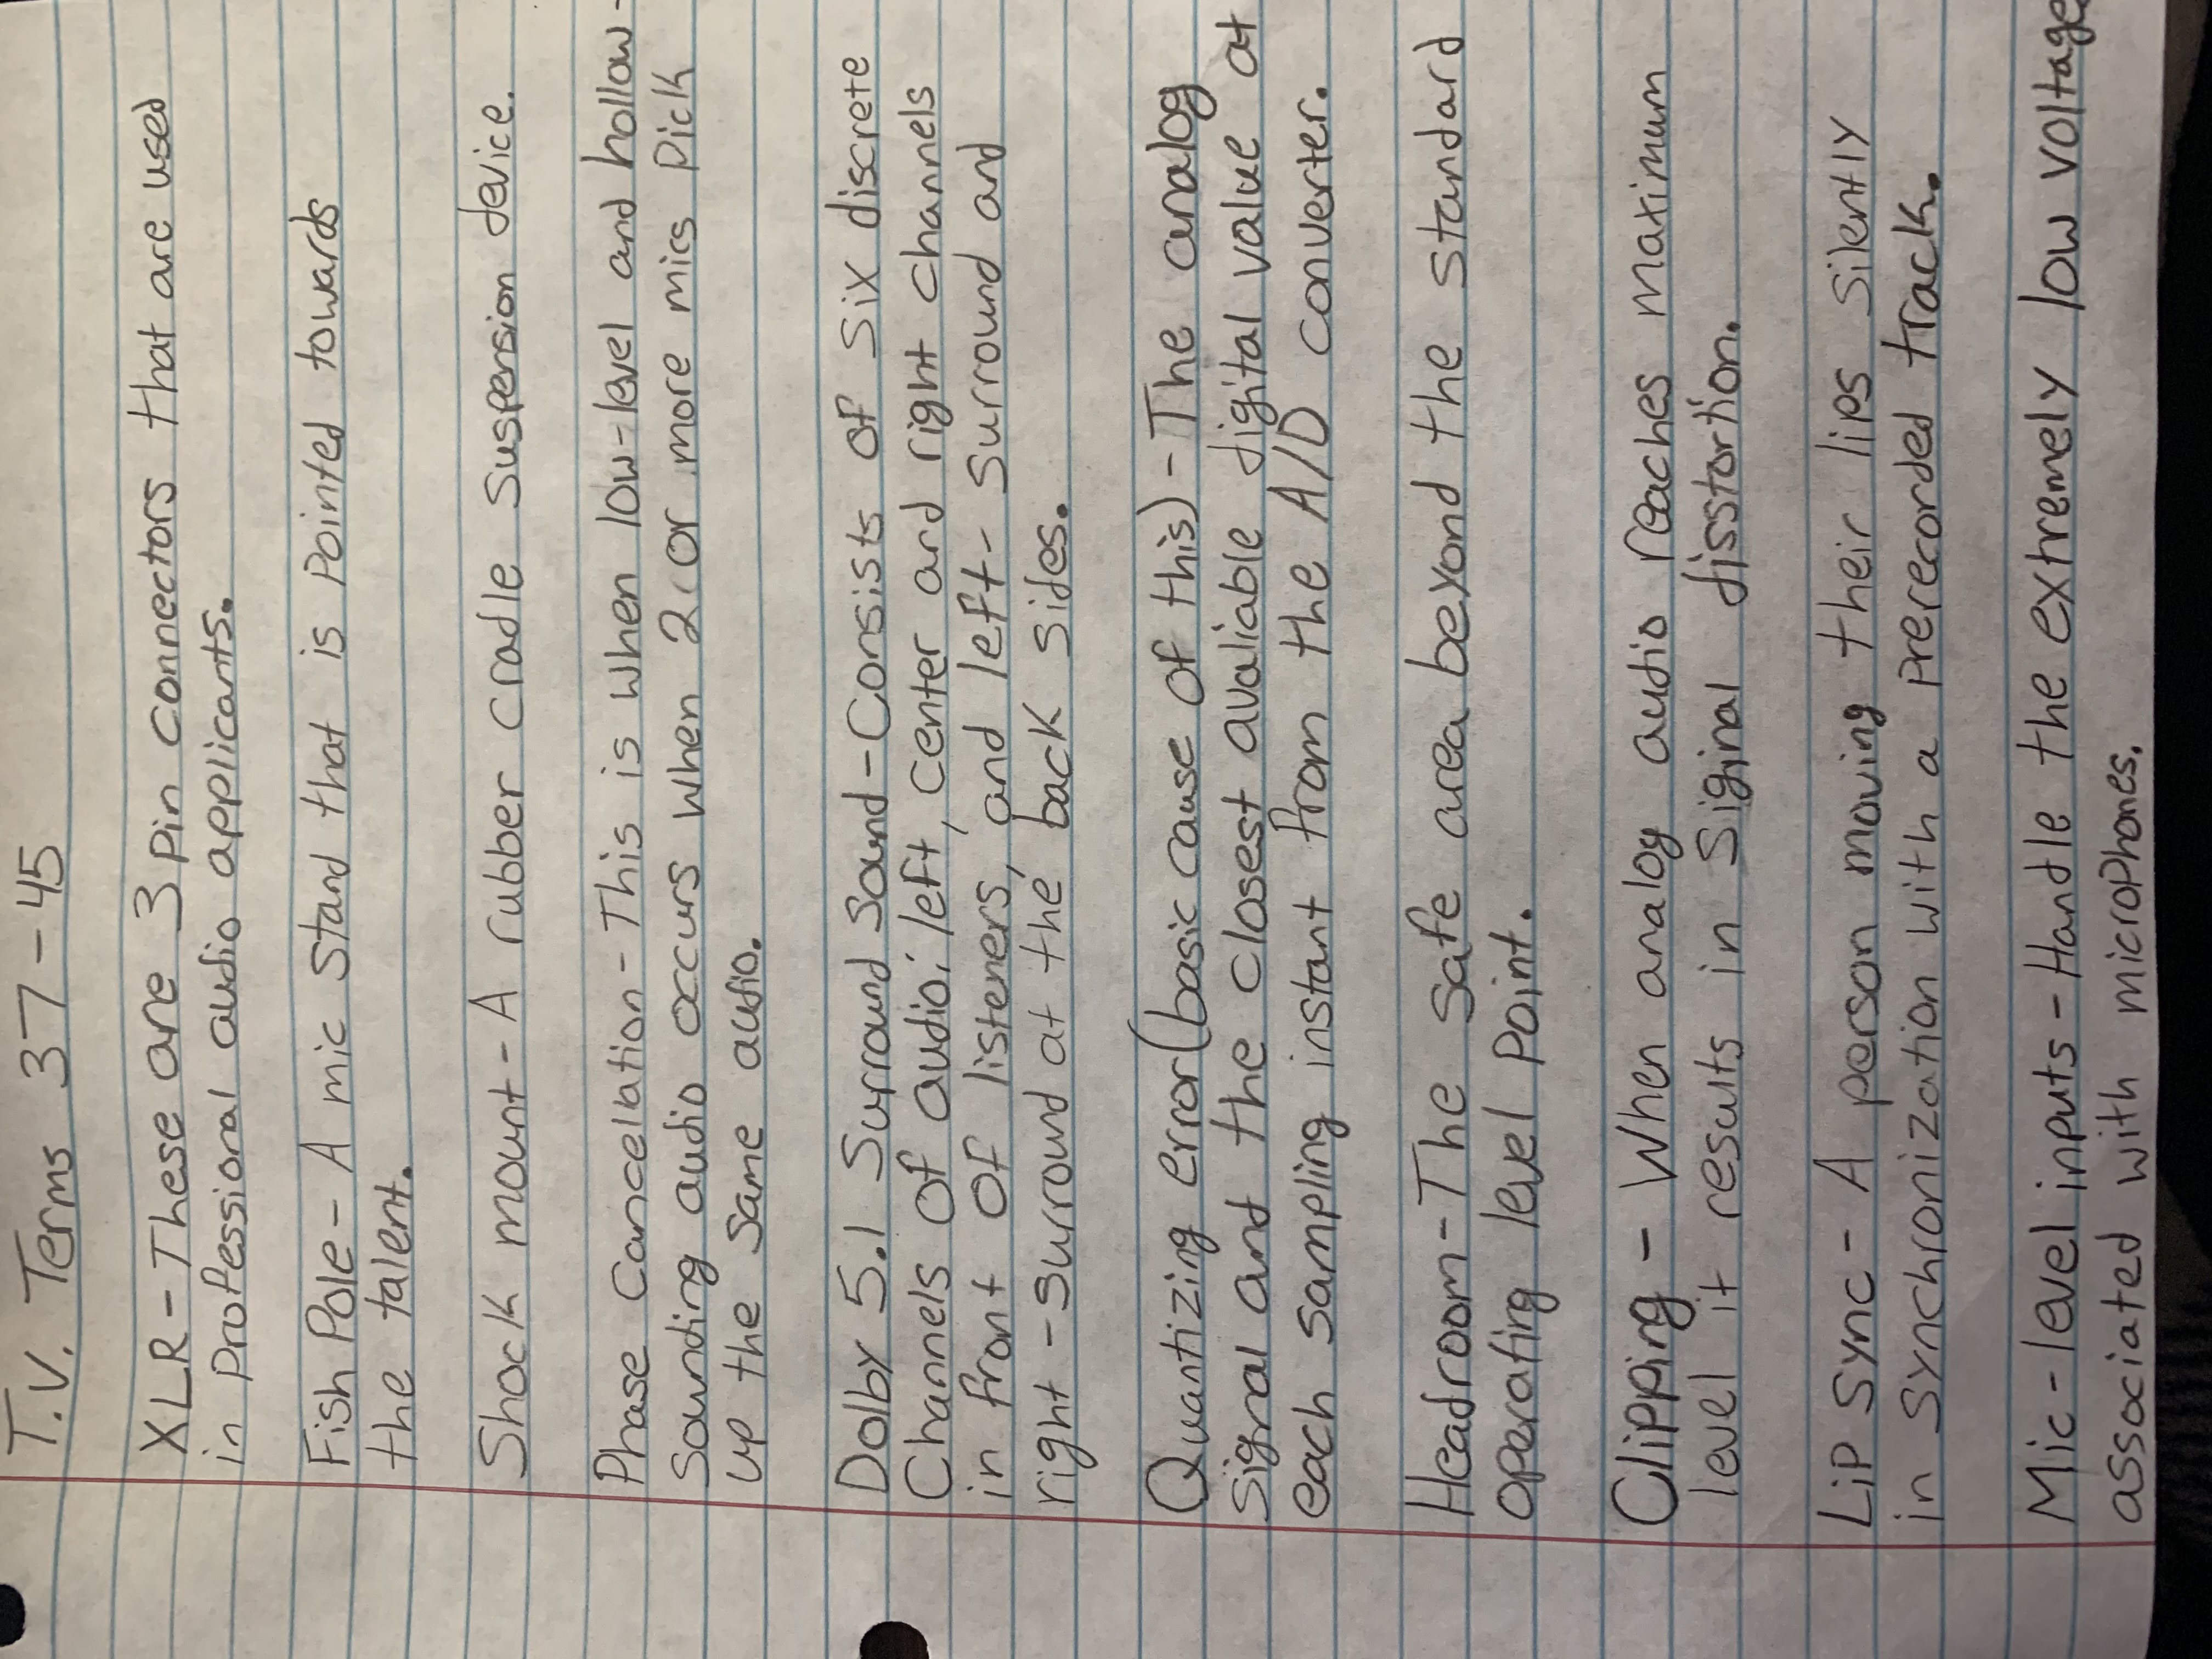 T.V. Terms 37-45
XLR - These are 3 pin connectors that are used
in professional audio applicants.
Fish Pole - A mic stand that is pointed towards
the talent.
Shock mount - A rubber cradle suspension device.
Phase Cancellation - This is when low-level and hollow-
sounding audio occurs when 2 or more mics pick
up the same audio.
Dolby 5.1 Surround Sound - Consists of six discrete
channels of audio: left, center and right channels
in front of listeners, and left- surround and
right -surround at the back sides.
Quantizing error (basic cause of this) - The analog
signal and the closest avaliable digital value at
each sampling instant from the A/D converter.
Headroom - The safe area beyond the standard
operating level point.
Clipping - When analog audio reaches maximum
level it results in siginal disstortion.
Lip sync - A person moving their lips silently
in synchronization with a prerecorded track.
Mic-level inputs - Handle the extremely low voltage
associated with microphones.